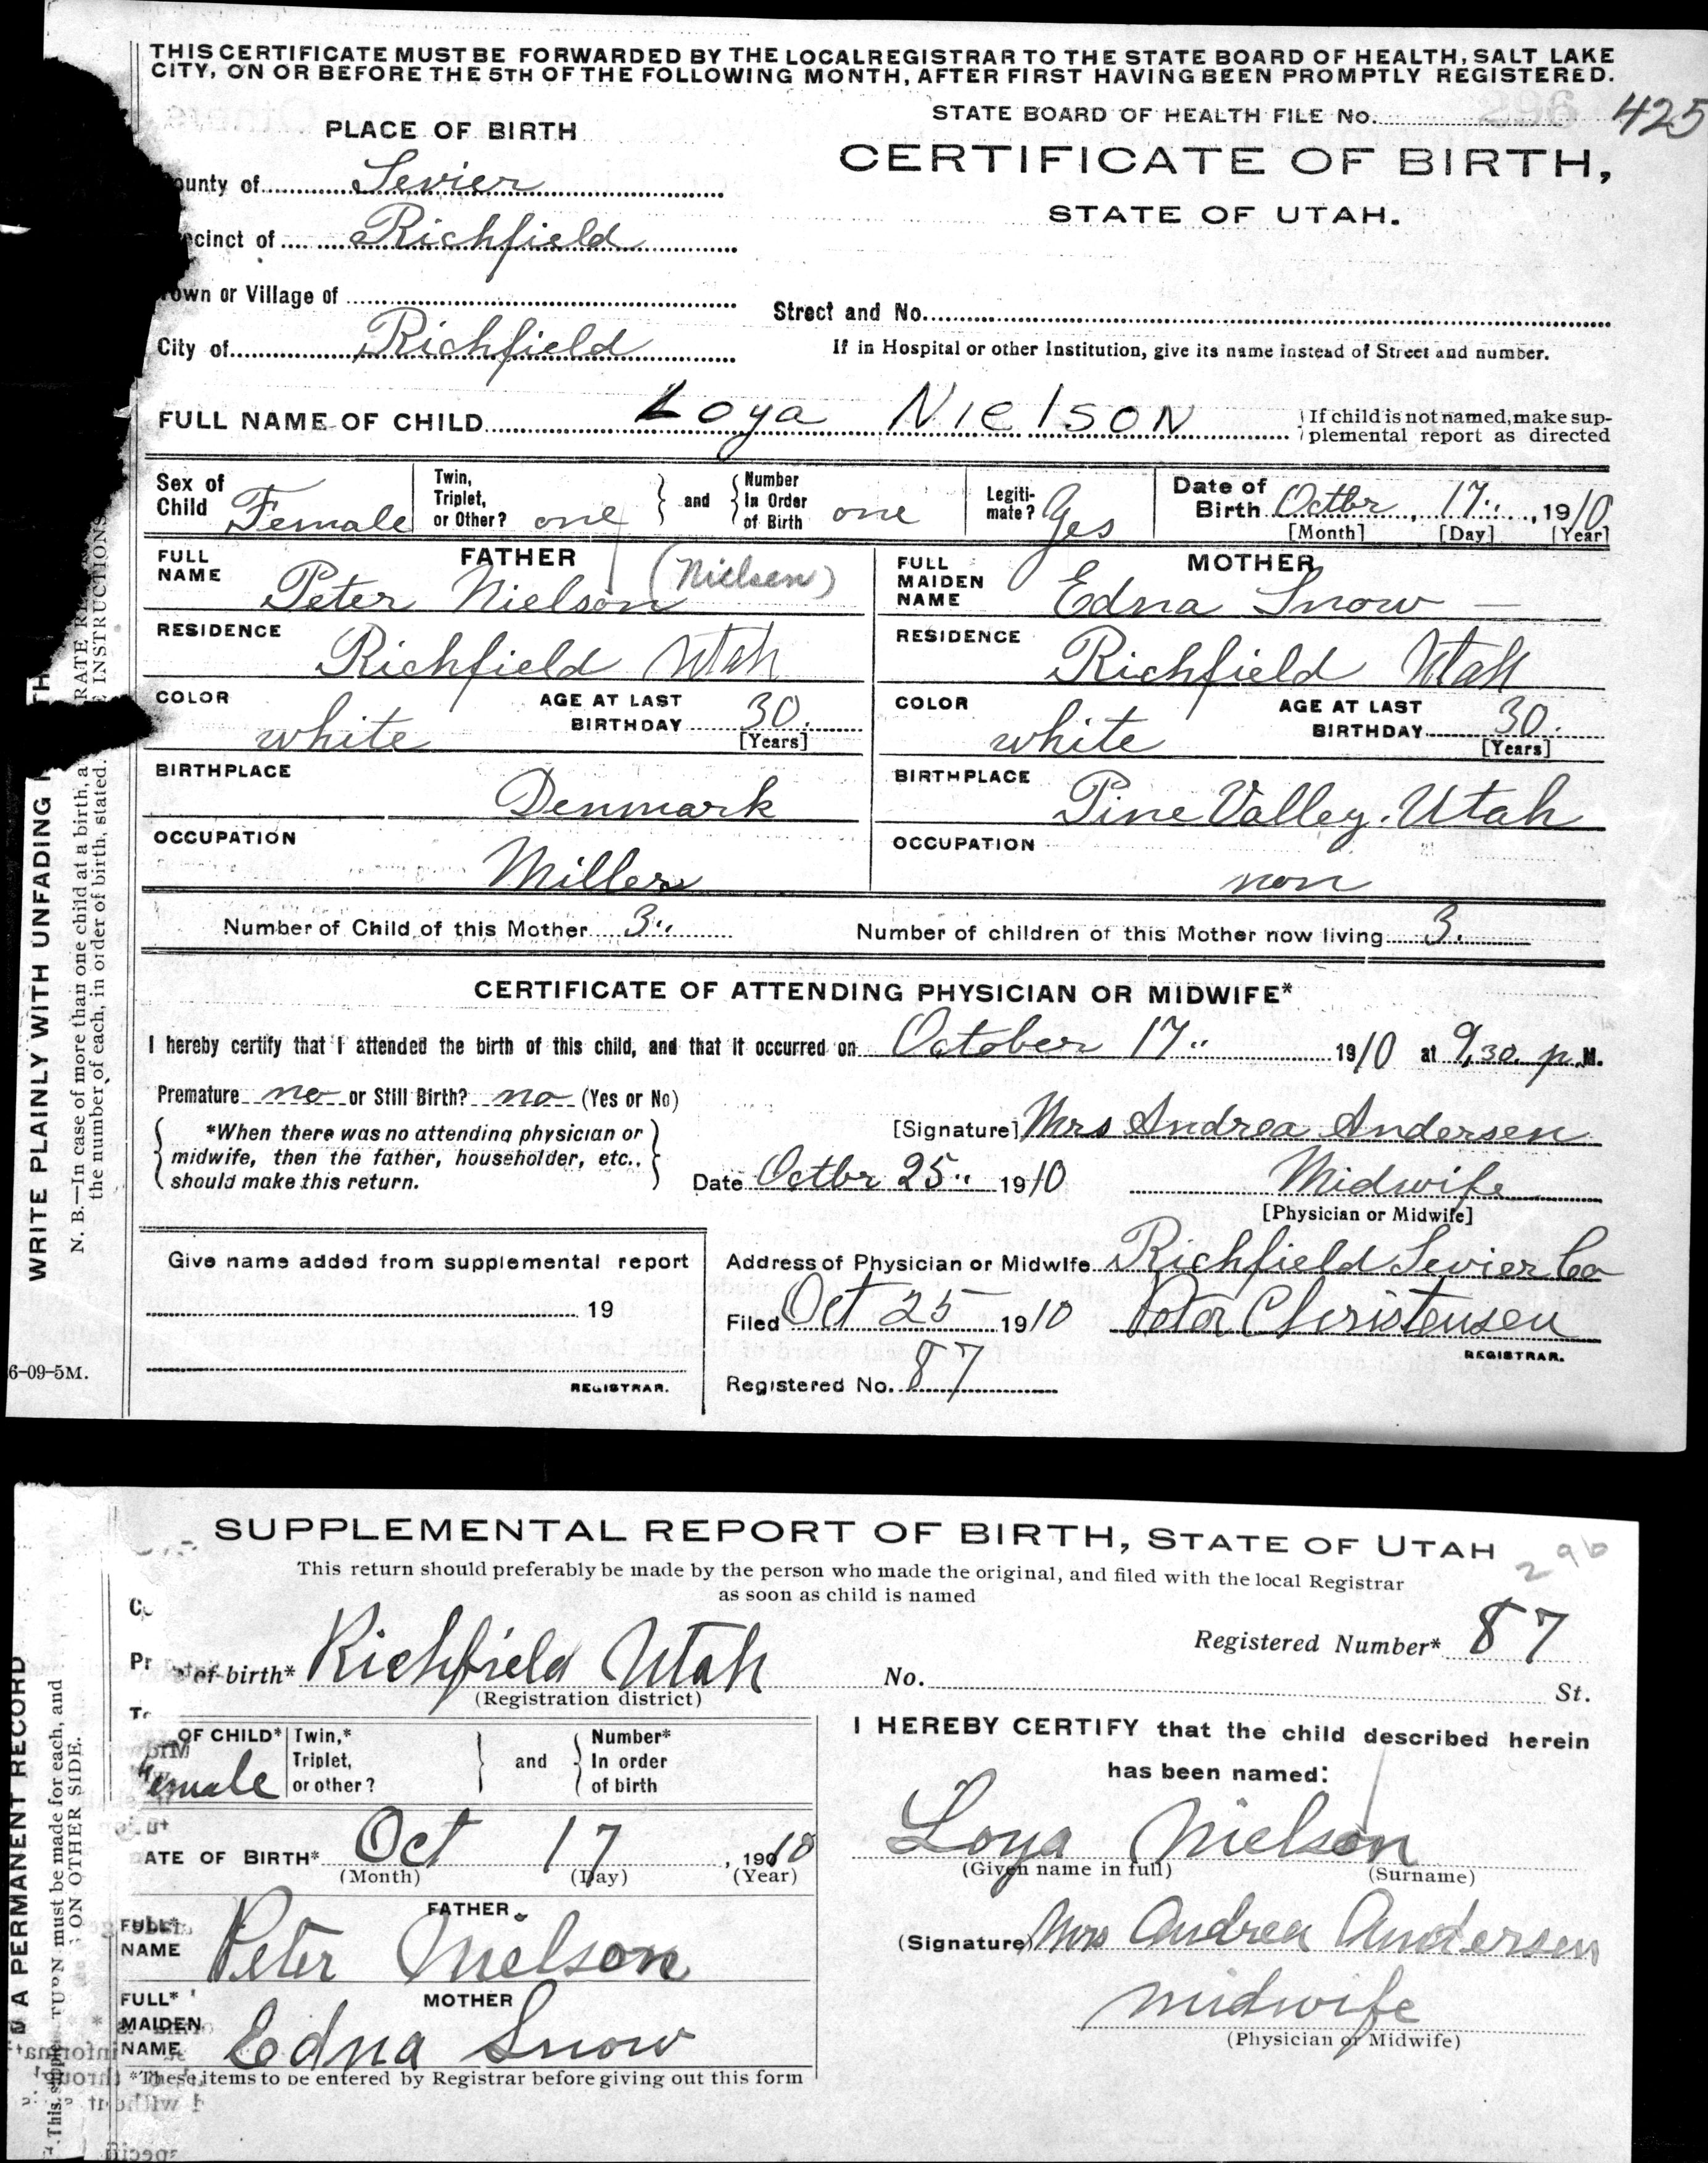 THIS CERTIFICATE MUST BE FORWARDED BY THE LOCAL REGISTRAR TO THE STATE BOARD OF HEALTH, SALT LAKE
CITY, ON OR BEFORE THE 5TH OF THE FOLLOWING MONTH, AFTER FIRST HAVING BEEN PROMPTLY REGISTERED.
STATE BOARD OF HEALTH FILE No. 296 425
PLACE OF BIRTH
CERTIFICATE OF BIRTH,
STATE OF UTAH.
ounty of Sevier
ecinct of Richfield
own or Village of
Street and No.
City of Richfield
If in Hospital or other Institution, give its name instead of Street and number.
FULL NAME OF CHILD Loya Nielson
If child is not named, make sup-
plemental report as directed
Sex of Child Female
Twin, Triplet, or Other? one and Number In Order of Birth one
Legiti-mate? Yes
Date of Birth Octbr, 17.., 1910
[Month] [Day] [Year]
FATHER
FULL NAME Peter Nielson (Nielsen)
RESIDENCE Richfield Utah
COLOR white AGE AT LAST BIRTHDAY 30.
[Years]
BIRTHPLACE Denmark
OCCUPATION Miller
MOTHER
FULL MAIDEN NAME Edna Snow —
RESIDENCE Richfield Utah
COLOR white AGE AT LAST BIRTHDAY 30.
[Years]
BIRTHPLACE Pine Valley. Utah
OCCUPATION non
Number of Child of this Mother 3.. Number of children of this Mother now living 3.
CERTIFICATE OF ATTENDING PHYSICIAN OR MIDWIFE*
I hereby certify that I attended the birth of this child, and that it occurred on October 17.. 1910 at 9,30. p.M.
Premature no or Still Birth? no (Yes or No)
*When there was no attending physician or
midwife, then the father, householder, etc.,
should make this return.
[Signature] Mrs Andrea Andersen
Date Octbr 25.. 1910 Midwife
[Physician or Midwife]
Give name added from supplemental report
19
REGISTRAR.
Address of Physician or Midwife Richfield Sevier Co
Filed Oct 25 1910 Peter Christensen
REGISTRAR.
Registered No. 87
6-09-5M.
WRITE PLAINLY WITH UNFADING TH
N. B.—In case of more than one child at a birth, a RATE RE
the number of each, in order of birth, stated. E INSTRUCTIONS
SUPPLEMENTAL REPORT OF BIRTH, STATE OF UTAH
296
This return should preferably be made by the person who made the original, and filed with the local Registrar
as soon as child is named
Registered Number* 87
Pr of birth* Richfield Utah No. St.
(Registration district)
OF CHILD* Female
Twin,* Triplet, or other? and Number* In order of birth
ATE OF BIRTH* Oct 17, 1910
(Month) (Day) (Year)
FATHER
FULL* NAME Peter Nielson
MOTHER
FULL* MAIDEN NAME Edna Snow
*These items to be entered by Registrar before giving out this form
I HEREBY CERTIFY that the child described herein
has been named:
Loya Nielson
(Given name in full) (Surname)
(Signature) Mrs Andrea Andersen
midwife
(Physician or Midwife)
A PERMANENT RECORD
This supple TURN must be made for each, and
ON OTHER SIDE.